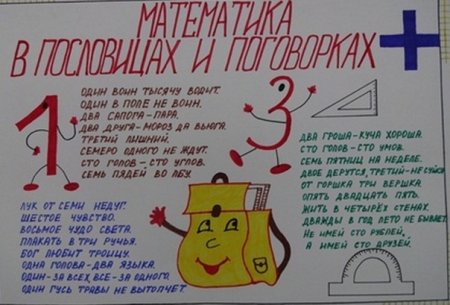 МАТЕМАТИКА
В ПОСЛОВИЦАХ И ПОГОВОРКАХ
ОДИН ВОИН ТЫСЯЧУ ВОДИТ.
ОДИН В ПОЛЕ НЕ ВОИН.
ДВА САПОГА – ПАРА.
ДВА ДРУГА – МОРОЗ ДА ВЬЮГА.
ТРЕТИЙ ЛИШНИЙ.
СЕМЕРО ОДНОГО НЕ ЖДУТ.
СТО ГОЛОВ – СТО УМОВ.
СЕМЬ ПЯДЕЙ ВО ЛБУ.
ЛУК ОТ СЕМИ НЕДУГ.
ШЕСТОЕ ЧУВСТВО.
ВОСЬМОЕ ЧУДО СВЕТА.
ПЛАКАТЬ В ТРИ РУЧЬЯ.
БОГ ЛЮБИТ ТРОИЦУ.
ОДНА ГОЛОВА – ДВА ЯЗЫКА.
ОДИН – ЗА ВСЕХ, ВСЕ – ЗА ОДНОГО.
ОДИН ГУСЬ ТРАВЫ НЕ ВЫТОПЧЕТ
ДВА ГРОША – КУЧА ХОРОША.
СТО ГОЛОВ – СТО УМОВ.
СЕМЬ ПЯТНИЦ НА НЕДЕЛЕ.
ДВОЕ ДЕРУТСЯ, ТРЕТИЙ – НЕ СУЙСЯ
ОТ ГОРШКА ТРИ ВЕРШКА.
ОПЯТЬ ДВАДЦАТЬ ПЯТЬ.
ЖИТЬ В ЧЕТЫРЁХ СТЕНАХ.
ДВАЖДЫ В ГОД ЛЕТО НЕ БЫВАЕТ.
НЕ ИМЕЙ СТО РУБЛЕЙ,
А ИМЕЙ СТО ДРУЗЕЙ.
1
3
+